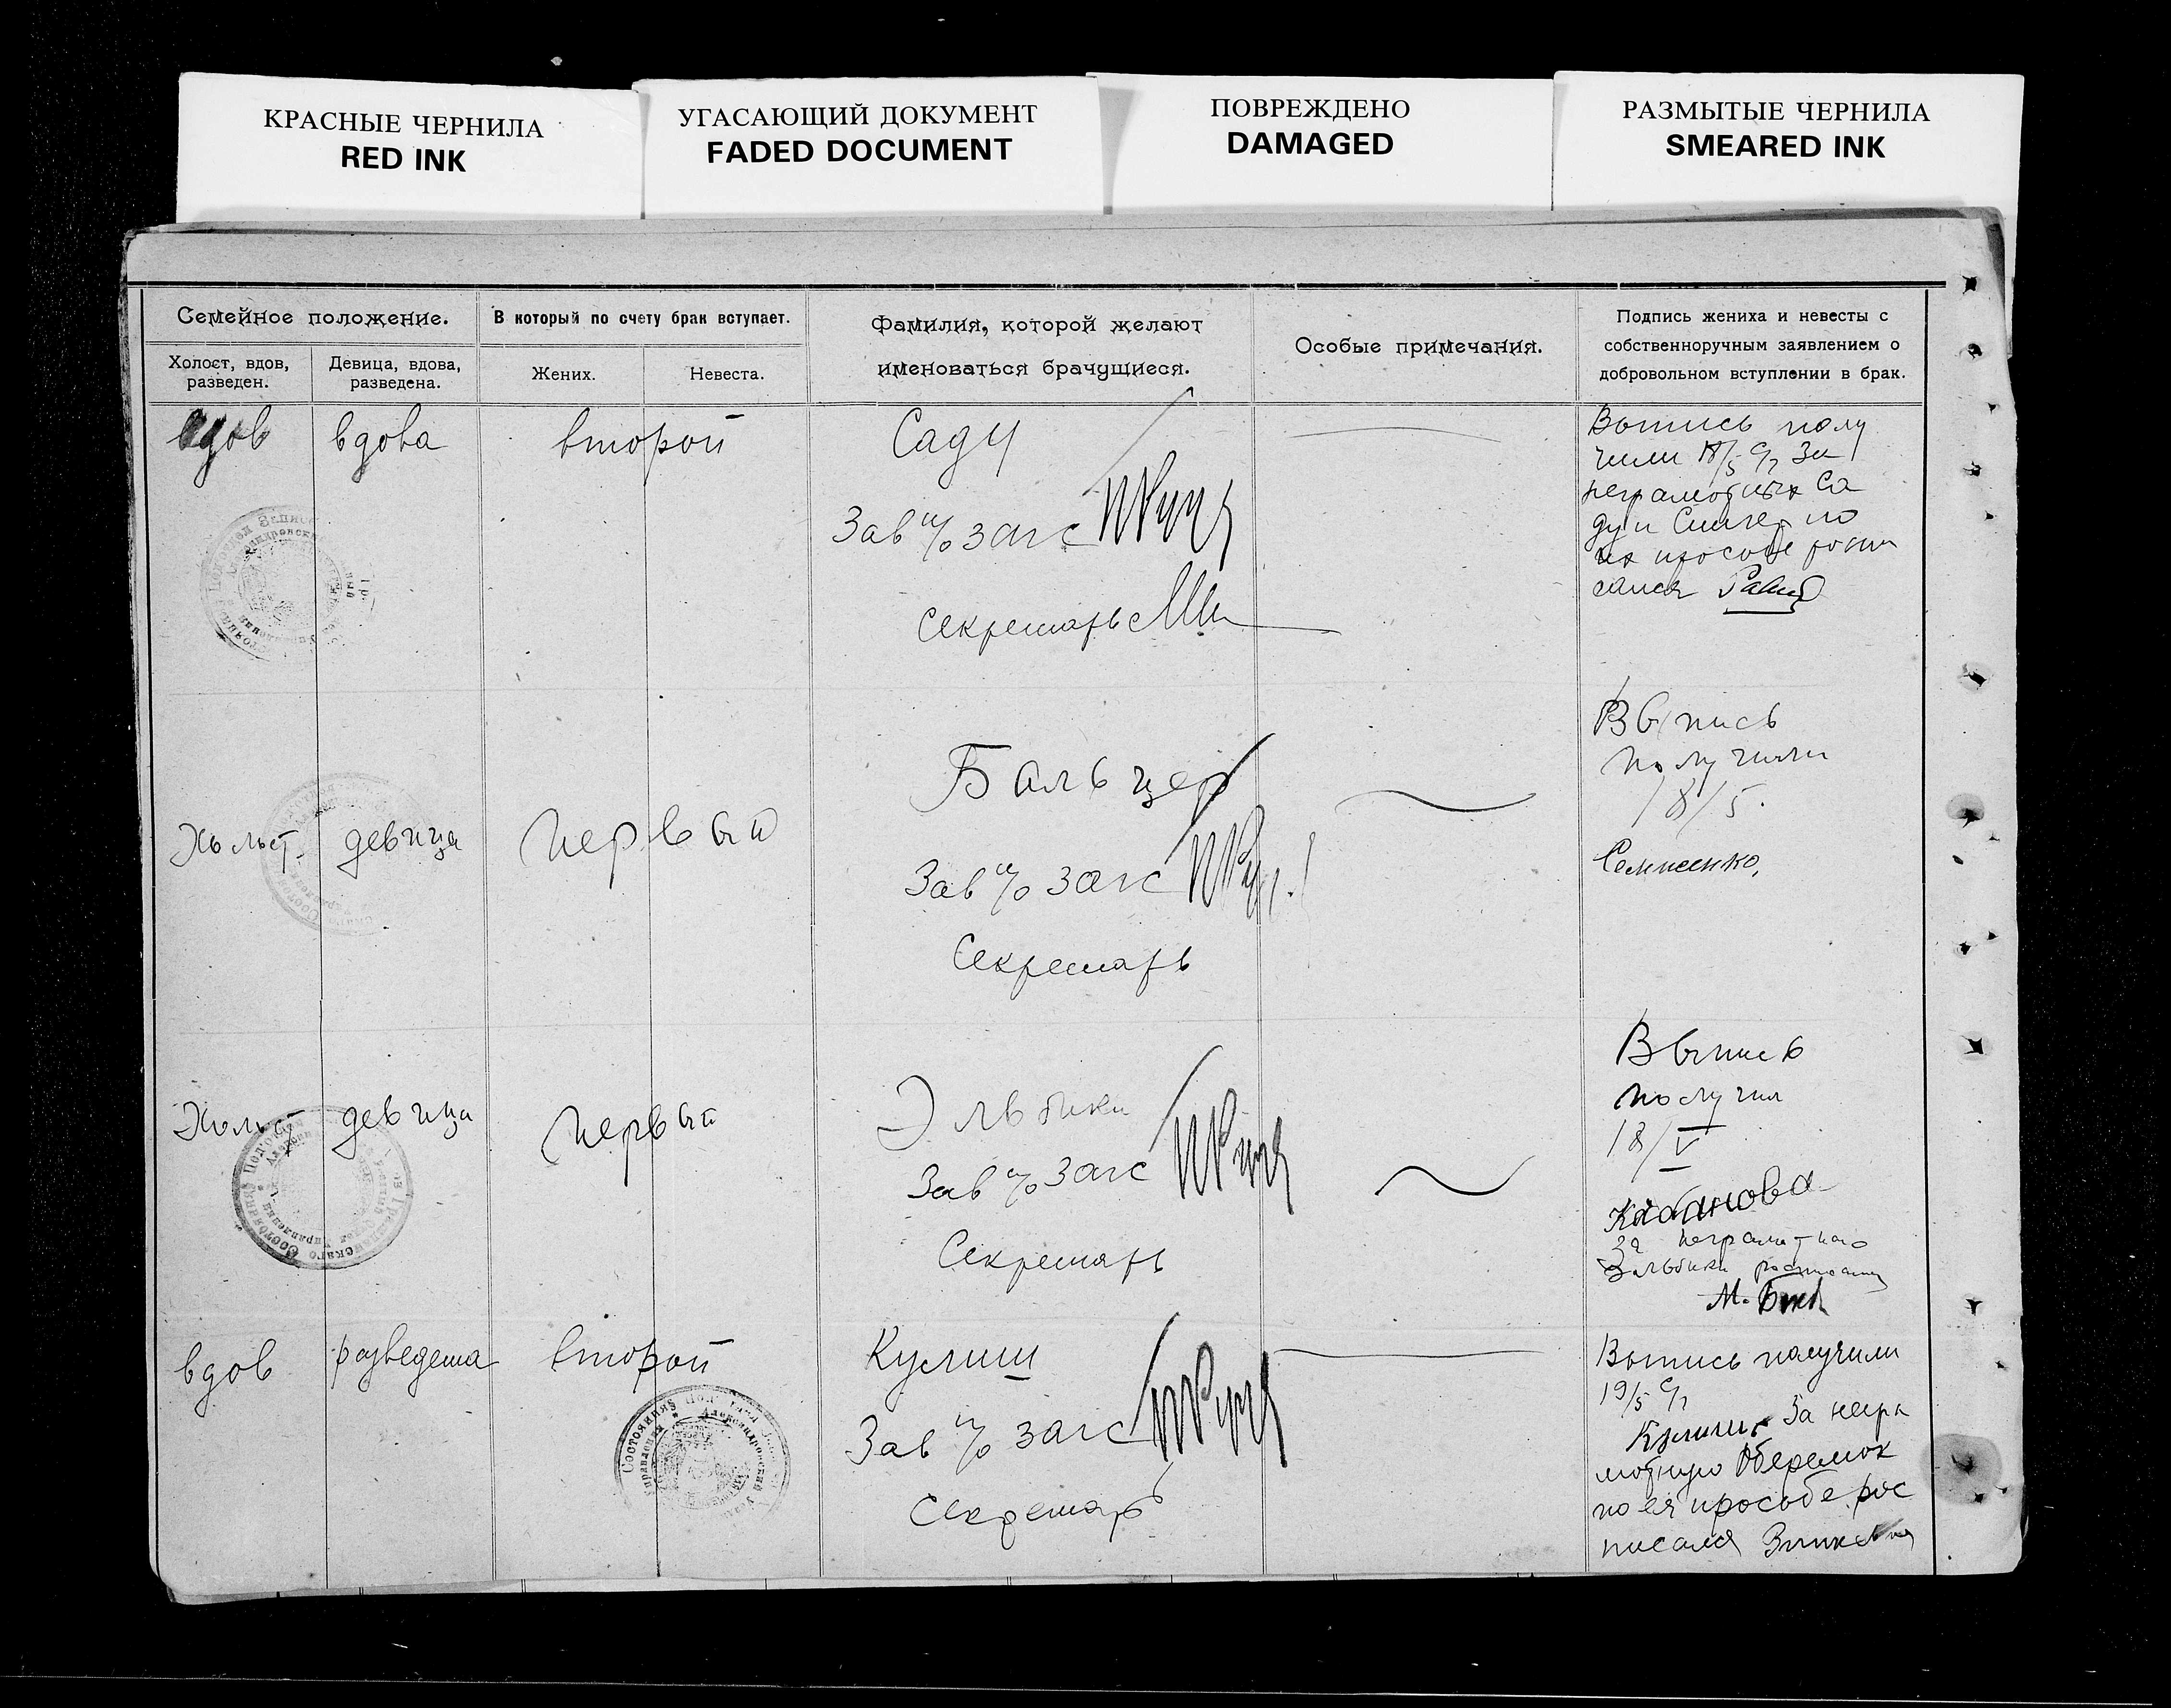 КРАСНЫЕ ЧЕРНИЛА
RED INK
УГАСАЮЩИЙ ДОКУМЕНТ
FADED DOCUMENT
ПОВРЕЖДЕНО
DAMAGED
РАЗМЫТЫЕ ЧЕРНИЛА
SMEARED INK
Семейное положение.
Холост, вдов, разведен.
Девица, вдова, разведена.
В который по счету брак вступает.
Жених.
Невеста.
Фамилия, которой желают
именоваться брачущиеся.
Особые примечания.
Подпись жениха и невесты с
собственноручным заявлением о
добровольном вступлении в брак.
вдов
вдова
второй
Саду
Зав п/о загс
Секретарь
Выпись полу
чили 18/5 За
неграмотных Са
ду и по
их просьбе роспи
сался
Холост.
девица
первый
Бальцер
Зав п/о загс
Секретарь
Выпись
получили
18/5.
Холост
девица
первый
Зав п/о загс
Секретарь
Выпись
получил
18/V
Кабанова
За неграмотного
М.
вдов
разведена
второй
Кулиш
Зав п/о загс
Секретарь
Выпись получили
19/5
Кулиш. За негра
мотную Оберемок
по ея просьбе рос
писался